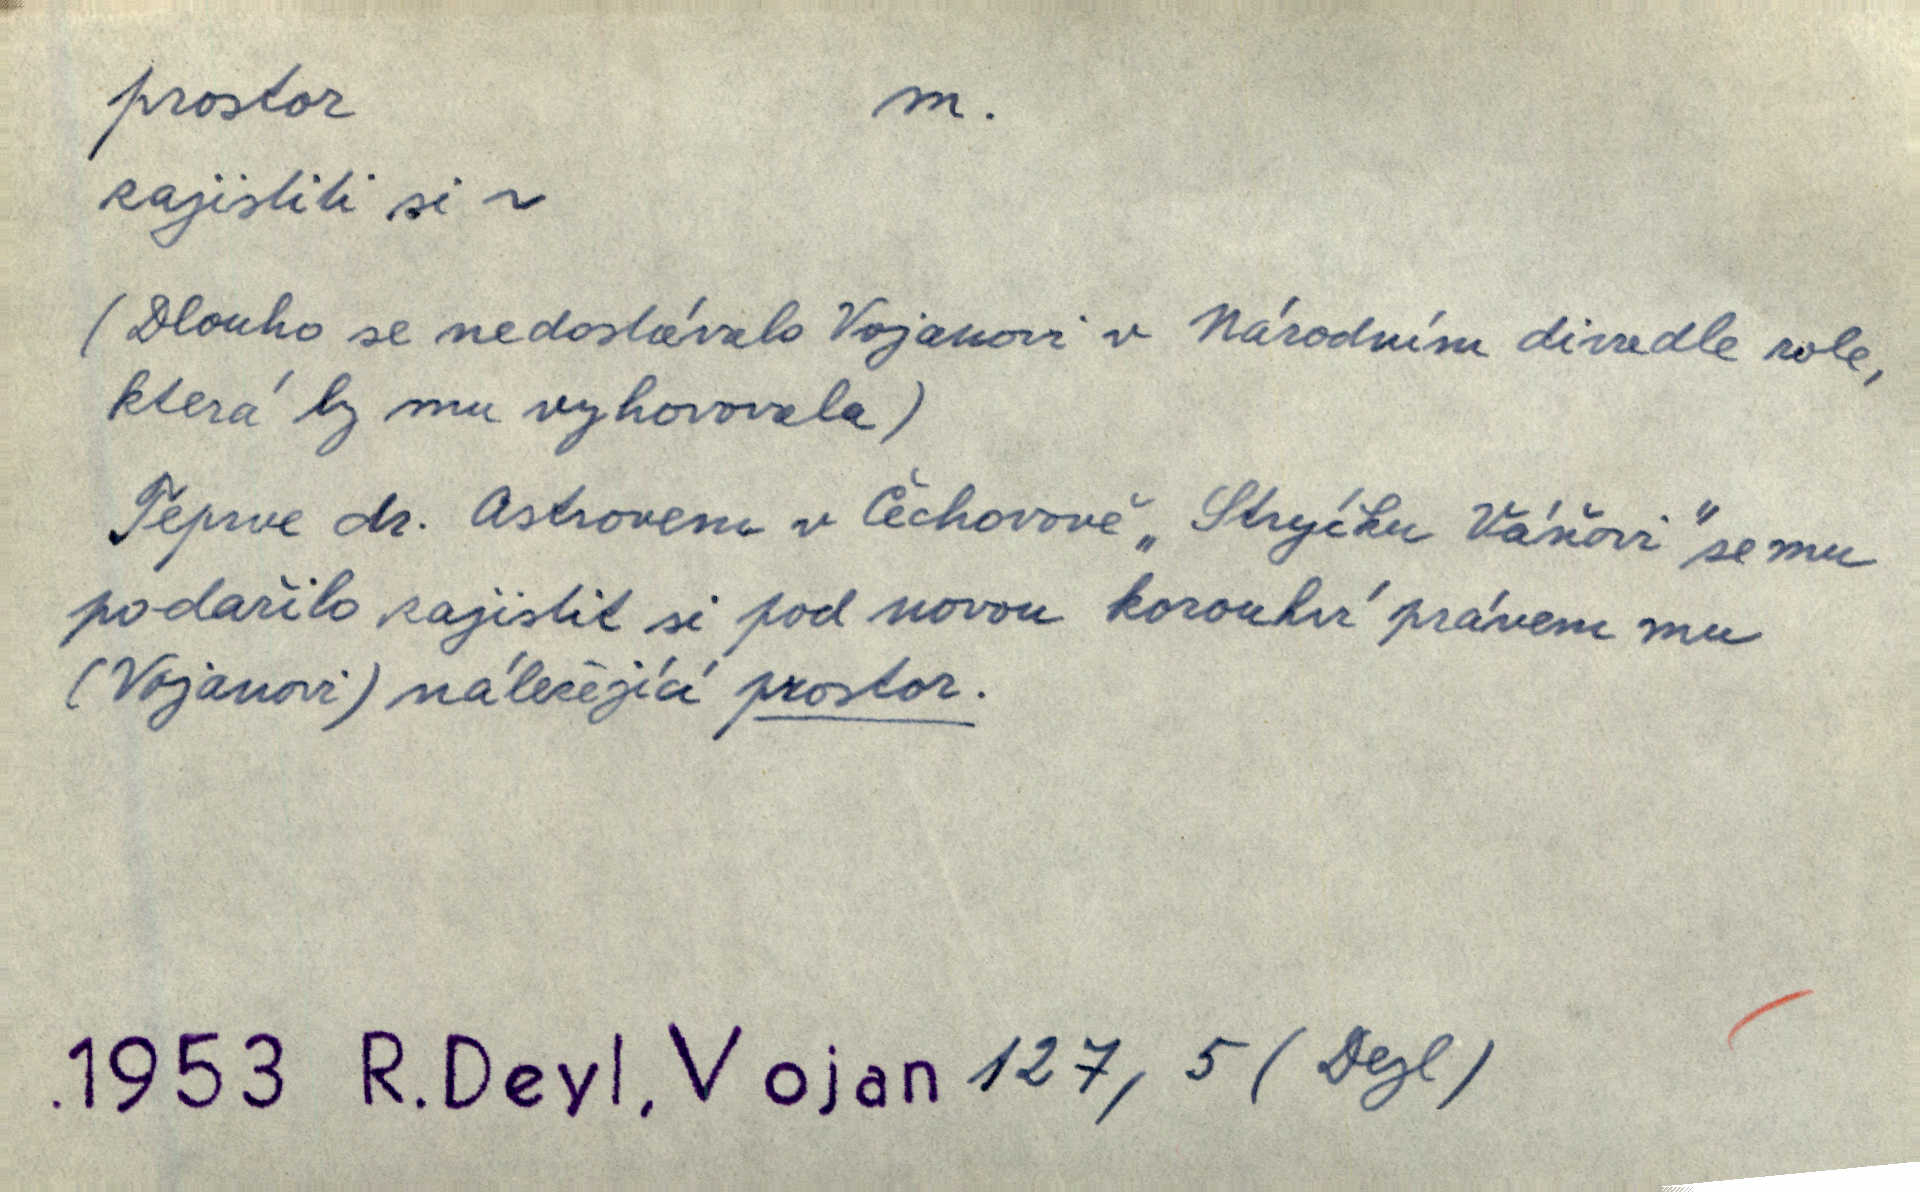 prostor m.
zajistiti si ~
(Dlouho se nedostávalo Vojanovi v Národním divadle role,
která by mu vyhovovala)
Teprve dr. Astrovem v Čechovově „Strýčku Váňovi" se mu
podařilo zajistit si pod novou korouhví právem mu
(Vojanovi) náležející prostor.
.1953 R.Deyl, Vojan 127, 5 (Deyl)